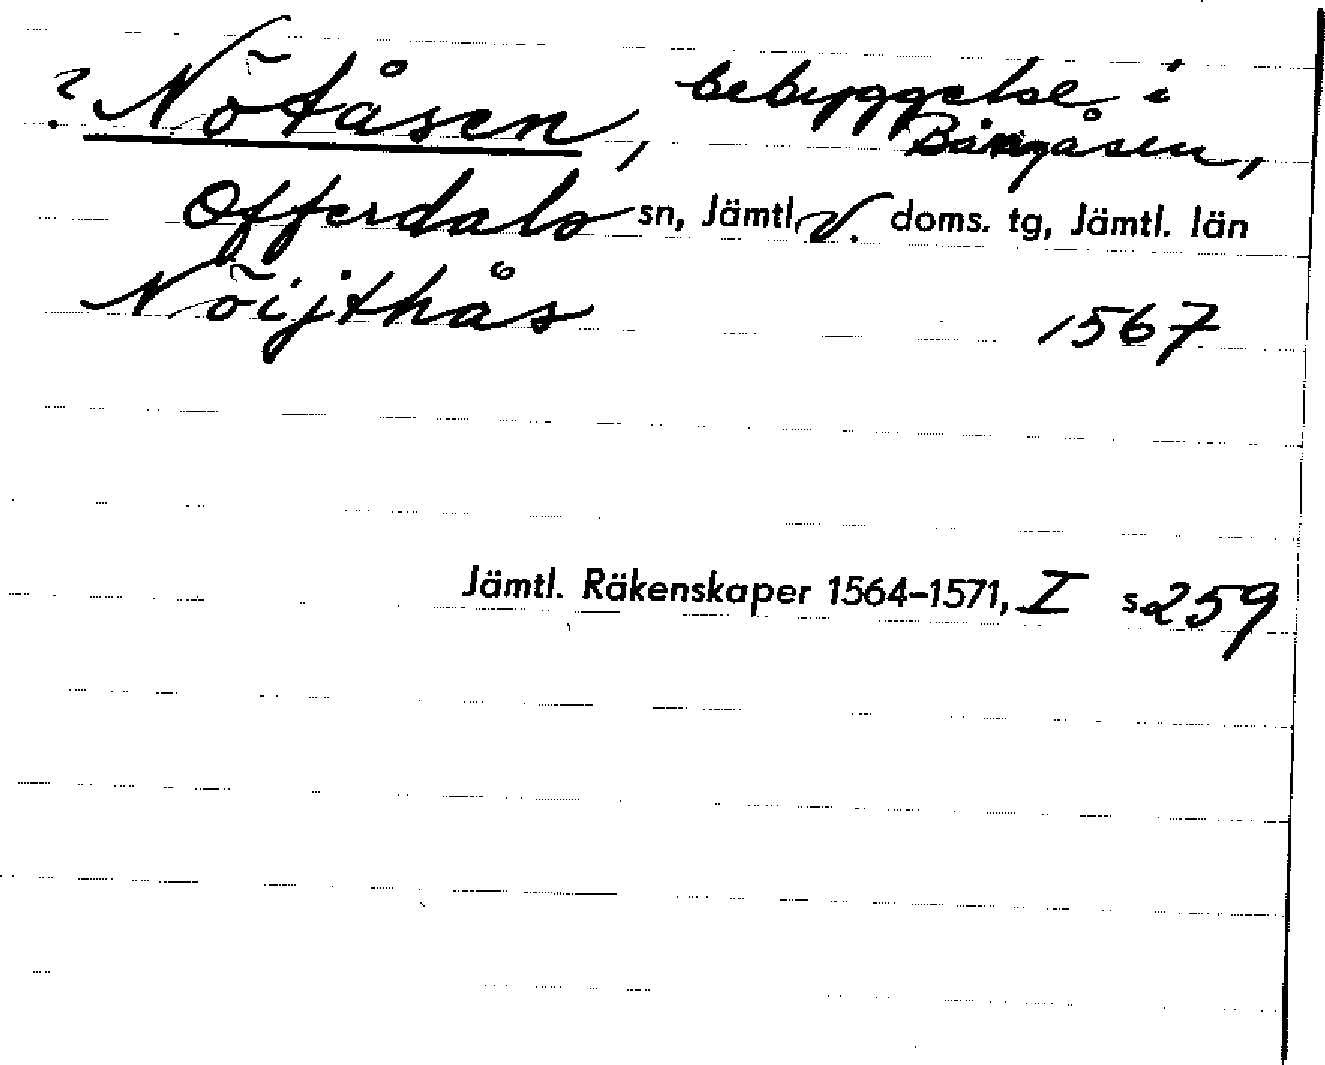 ? Nötåsen, bebyggelse i
Bångåsen,
Offerdals sn, Jämtl. V. doms. tg, Jämtl. län
Nöijthås 1567
Jämtl. Räkenskaper 1564-1571, I s. 259